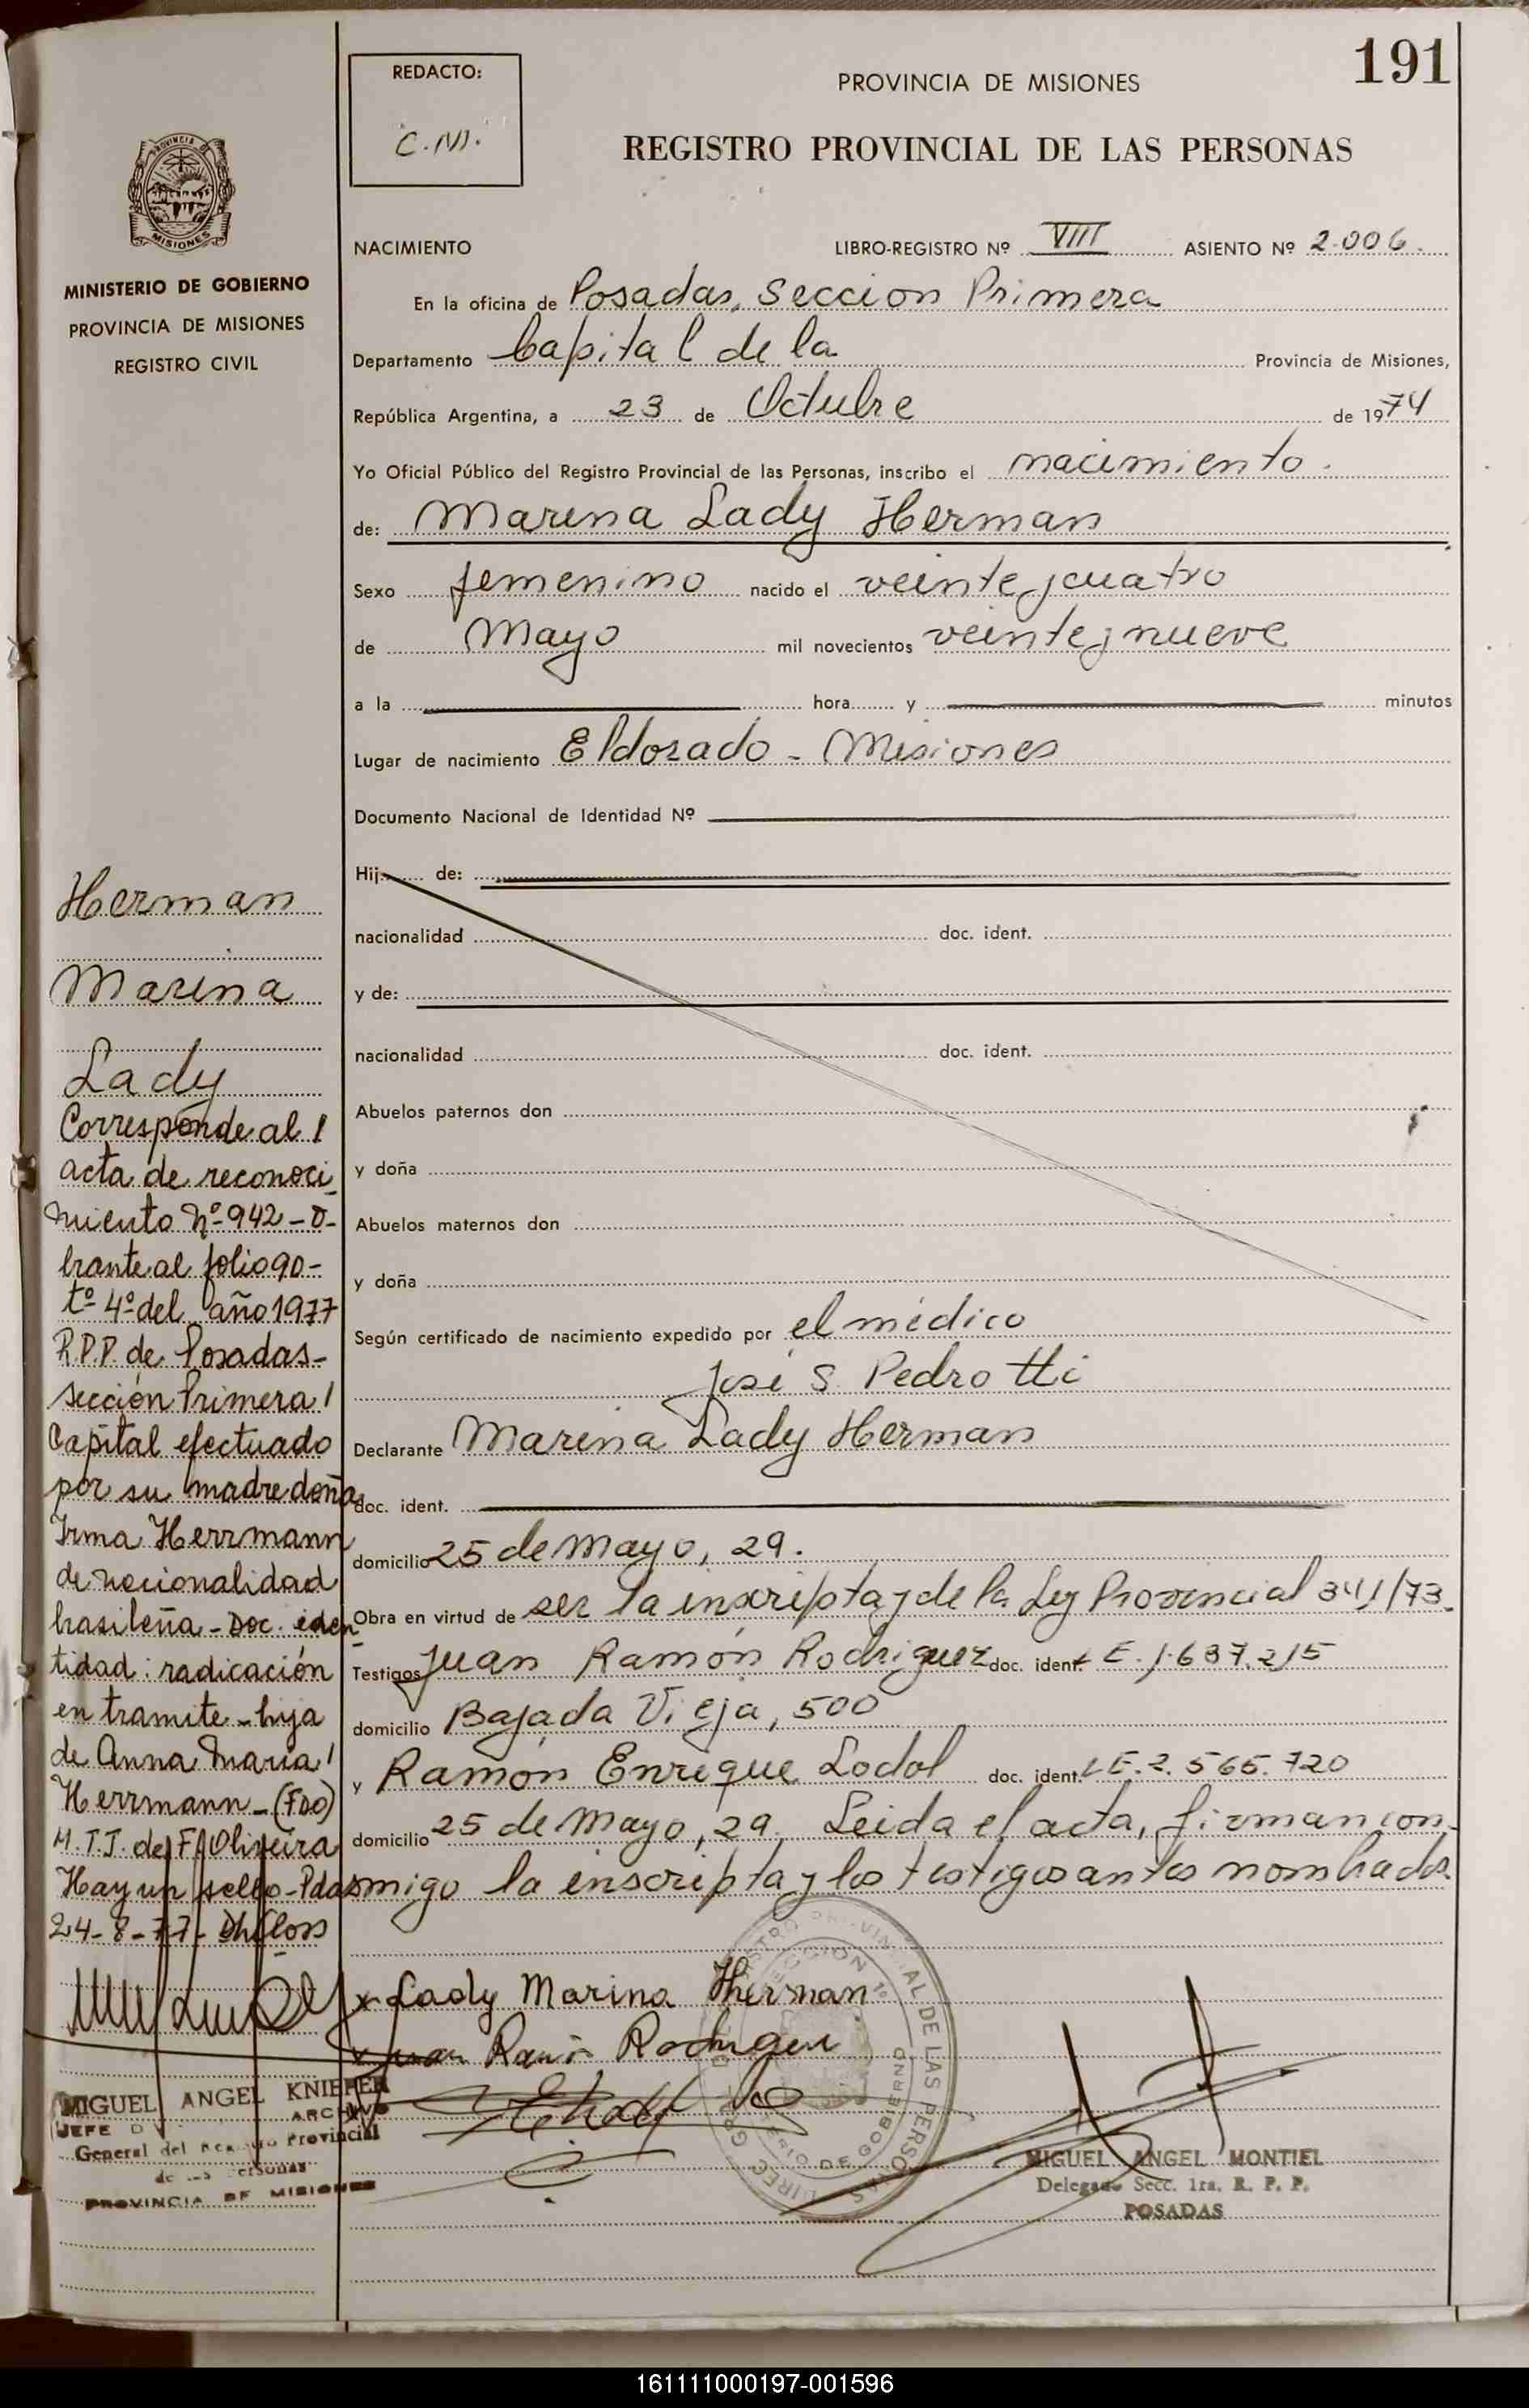 191
REDACTO:
C.M.
PROVINCIA DE MISIONES
REGISTRO PROVINCIAL DE LAS PERSONAS
PROVINCIA DE
MISIONES
MINISTERIO DE GOBIERNO
PROVINCIA DE MISIONES
REGISTRO CIVIL
NACIMIENTO LIBRO-REGISTRO Nº VIII ASIENTO Nº 2.006.
En la oficina de Posadas, Seccion Primera
Departamento Capital de la Provincia de Misiones,
República Argentina, a 23 de Octubre de 1974
Yo Oficial Público del Registro Provincial de las Personas, inscribo el nacimiento.
de: Marina Lady Herman
Sexo femenino nacido el veinte y cuatro
de Mayo mil novecientos veinte y nueve
a la hora y minutos
Lugar de nacimiento Eldorado - Misiones
Documento Nacional de Identidad Nº
Hij de:
nacionalidad doc. ident.
y de:
nacionalidad doc. ident.
Abuelos paternos don
y doña
Abuelos maternos don
y doña
Según certificado de nacimiento expedido por el médico
José S. Pedrotti
Declarante Marina Lady Herman
doc. ident.
domicilio 25 de Mayo, 29.
Obra en virtud de ser la inscripta y de la Ley Provincial 341/73.
Testigos Juan Ramón Rodriguez doc. ident. L E. 1.637.215
domicilio Bajada Vieja, 500
y Ramón Enrique Lodol doc. ident. L E. 2.565.720
domicilio 25 de Mayo, 29. Leida el acta, firman con-
migo la inscripta y los testigos antes nombrados.
Herman
Marina
Lady
Corresponde al /
acta de reconoci
miento Nº 942 - O-
brante al folio 90-
tº 4º del año 1977
R.P.P. de Posadas-
sección Primera /
Capital efectuado
por su madre doña
Irma Herrmann
de nacionalidad
brasileña - Doc. iden
tidad: radicación
en tramite - hija
de Anna Maria /
Herrmann - (Fdo)
M.T.J. de F. Oliveira
Hay un sello - Pdas
24-8-77-
x Lady Marina Herman
x Juan Ramón Rodriguez
MIGUEL ANGEL KNIEPER
JEFE ARCHIVO
General del Registro Provincial
de las Personas
PROVINCIA DE MISIONES
MIGUEL ANGEL MONTIEL
Delegado Secc. 1ra. R. P. P.
POSADAS
161111000197-001596